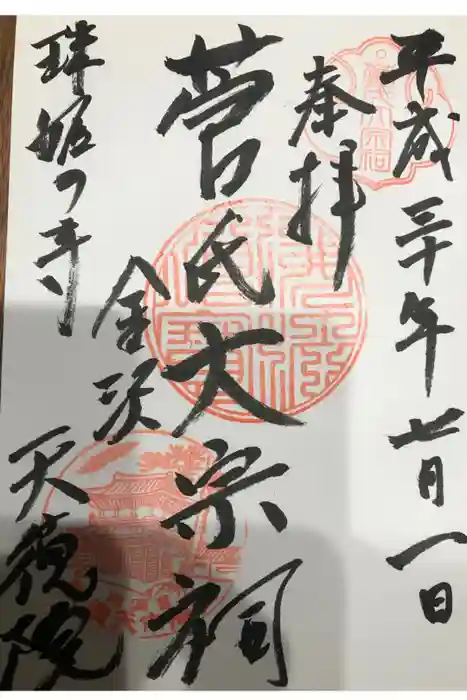 平成三十年七月一日
奉拝
菅氏大宗祠
金沢
天徳院
珠姫の寺